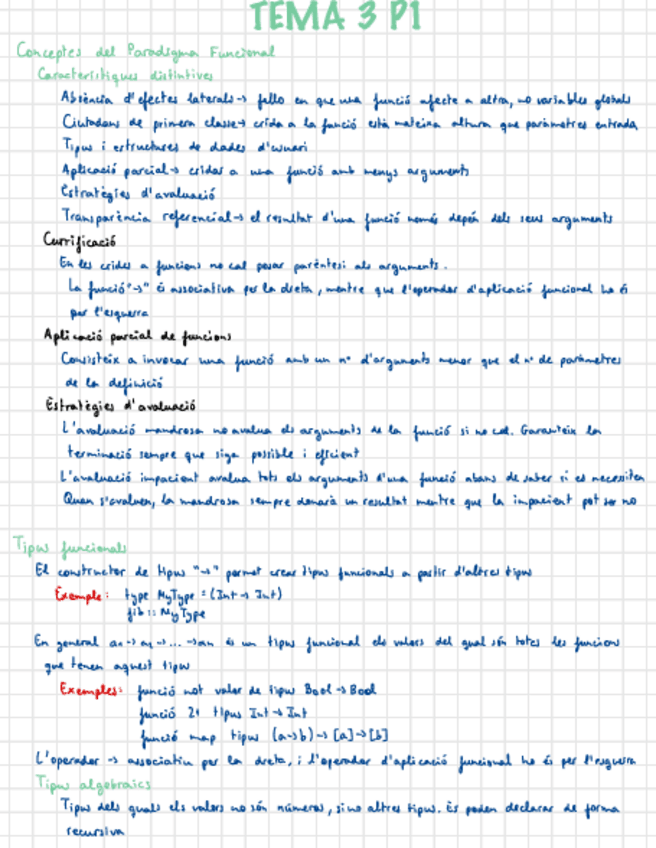 TEMA 3 P1
Conceptes del Paradigma Funcional
Característiques distintives
Absència d'efectes laterals→ fallo en que una funció afecte a altra, no variables globals
Ciutadans de primera classe→ crida a la funció està mateixa altura que paràmetres entrada
Tipus i estructures de dades d'usuari
Aplicació parcial→ cridar a una funció amb menys arguments
Estratègies d'avaluació
Transparència referencial→ el resultat d'una funció només depén dels seus arguments
Currificació
En les crides a funcions no cal posar parèntesi als arguments.
La funció "→" és associativa per la dreta, mentre que l'operador d'aplicació funcional ho és
per l'esquerra
Aplicació parcial de funcions
Consisteix a invocar una funció amb un nº d'arguments menor que el nº de paràmetres
de la definició
Estratègies d'avaluació
L'avaluació mandrosa no avalua els arguments de la funció si no cal. Garanteix la
terminació sempre que siga possible i eficient
L'avaluació impacient avalua tots els arguments d'una funció abans de saber si es necessiten
Quan s'avaluen, la mandrosa sempre donarà un resultat mentre que la impacient pot ser no
Tipus funcionals
El constructor de tipus "→" permet crear tipus funcionals a partir d'altres tipus
Exemple: type MyType = (Int → Int)
fib :: MyType
En general a₁→ →...→an és un tipus funcional els valors del qual són totes les funcions
que tenen aquest tipus
Exemples: funció not valor de tipus Bool → Bool
funció tipus Int → Int
funció map tipus (a→b)→[a]→[b]
L'operador → associatiu per la dreta, i l'operador d'aplicació funcional ho és per l'esquerra
Tipus algebraics
Tipus dels quals els valors no són números, sino altres tipus. Es poden declarar de forma
recursiva